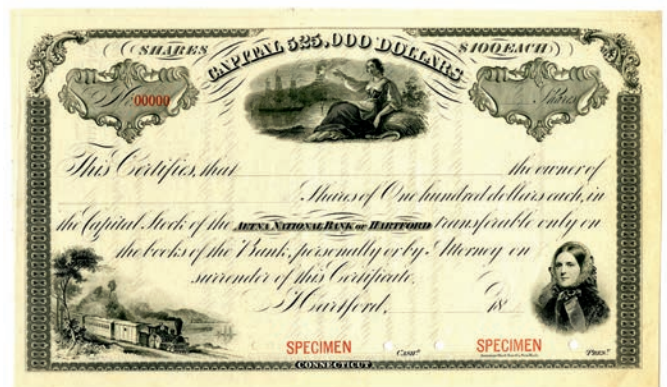 SHARES CAPITAL 525,000 DOLLARS $100 EACH
No. 00000 Shares
This Certifies, that the owner of
Shares of One hundred dollars each, in
the Capital Stock of the ÆTNA NATIONAL BANK OF HARTFORD transferable only on
the books of the Bank, personally or by Attorney on
surrender of this Certificate.
Hartford, 18
SPECIMEN CASHR. SPECIMEN PREST.
CONNECTICUT